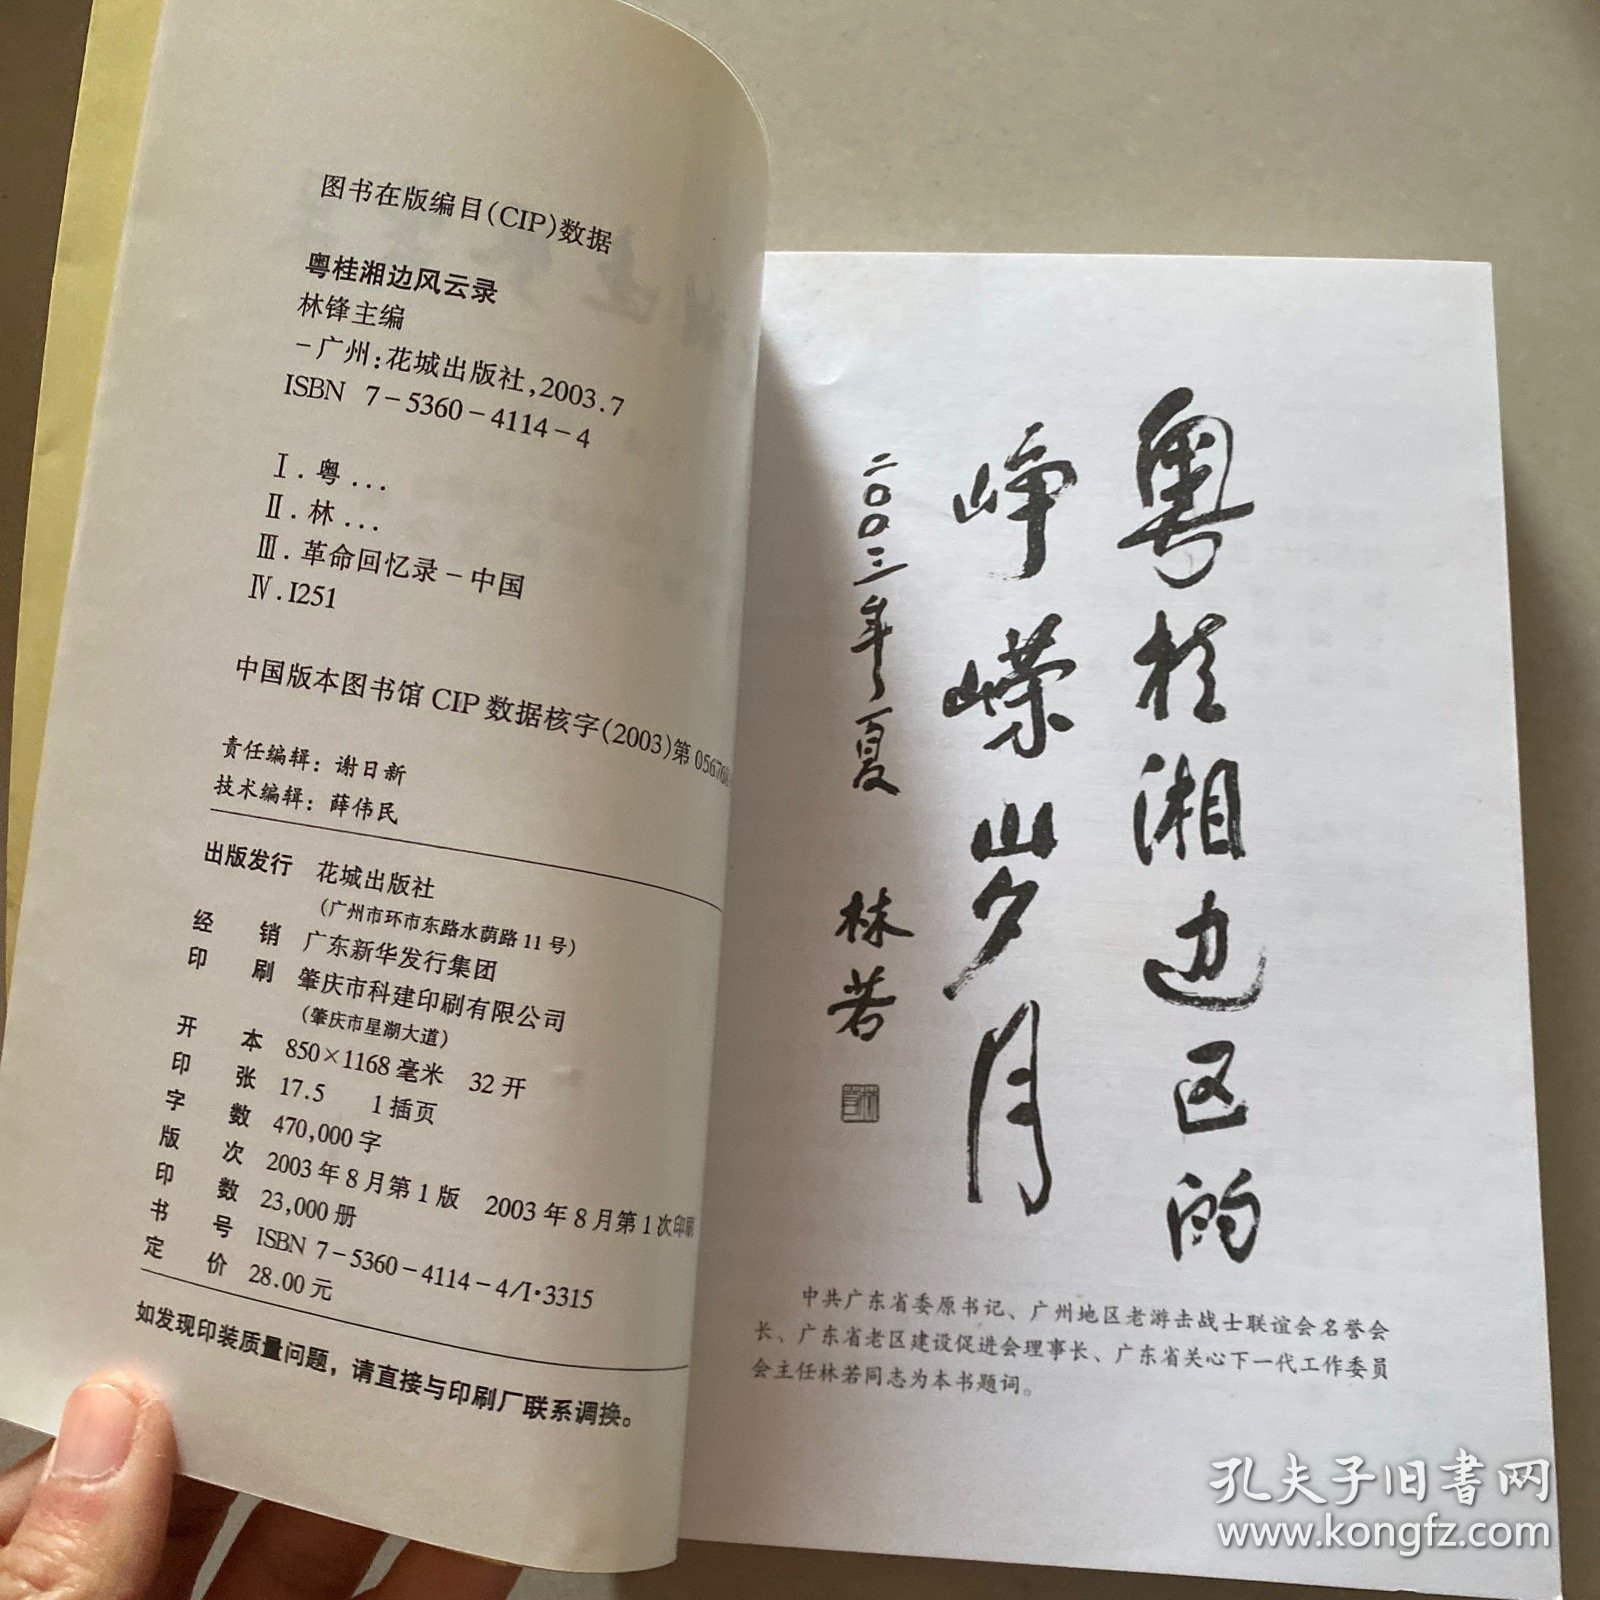 图书在版编目(CIP)数据
粤桂湘边风云录
林锋主编
-广州:花城出版社,2003.7
ISBN 7-5360-4114-4
Ⅰ.粤...
Ⅱ.林...
Ⅲ.革命回忆录-中国
Ⅳ.I251
中国版本图书馆 CIP 数据核字(2003)第 056768
责任编辑：谢日新
技术编辑：薛伟民
出版发行 花城出版社
(广州市环市东路水荫路11号)
经销 广东新华发行集团
印刷 肇庆市科建印刷有限公司
(肇庆市星湖大道)
开本 850×1168毫米 32开
印张 17.5 1插页
字数 470,000字
版次 2003年8月第1版 2003年8月第1次印刷
印数 23,000册
书号 ISBN 7-5360-4114-4/I·3315
定价 28.00元
如发现印装质量问题，请直接与印刷厂联系调换。
粤桂湘边区的
峥嵘岁月
二〇〇三年夏 林若
中共广东省委原书记、广州地区老游击战士联谊会名誉会
长、广东省老区建设促进会理事长、广东省关心下一代工作委员
会主任林若同志为本书题词。
孔夫子旧书网
www.kongfz.com